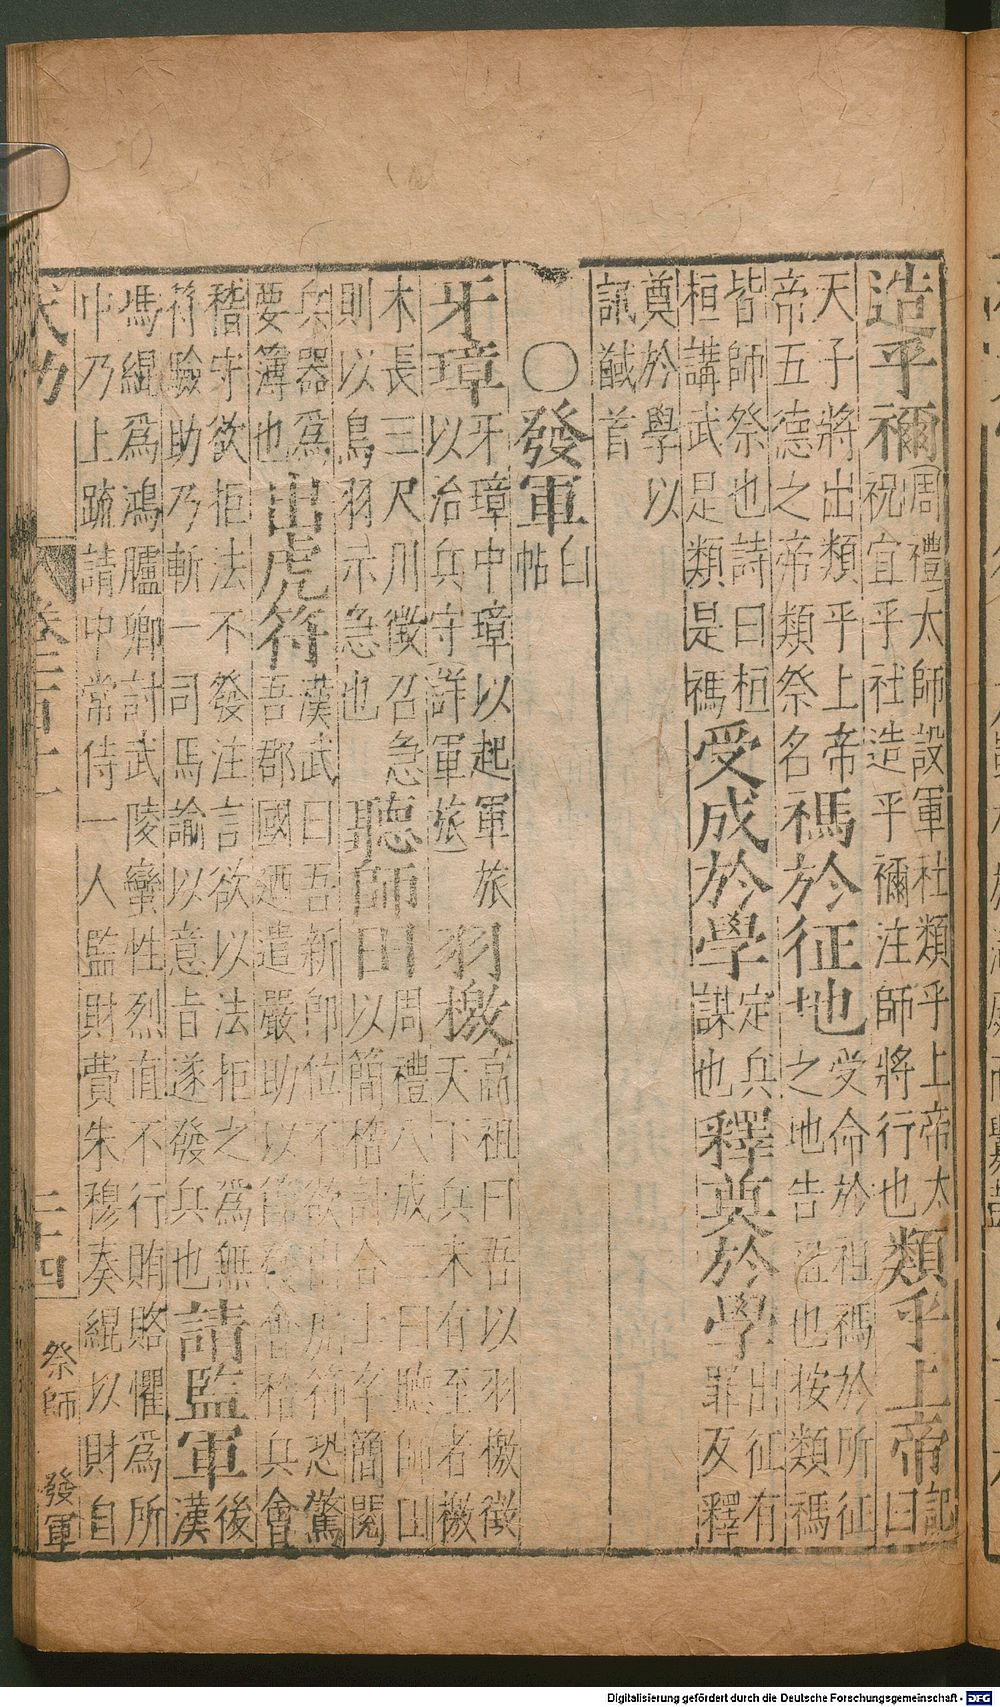 造乎禰周禮太師設軍社類乎上帝太
祝宜乎社造乎禰注師將行也類乎上帝記
曰
天子將出類乎上帝禡於征地受命於祖禡於所征
帝五德之帝類祭名之地告也按類禡
皆師祭也詩曰桓
桓講武是類是禡受成於學定兵
謀也釋奠於學出征有
罪反釋
奠於學以
訊馘首
〇發軍白
帖
牙璋牙璋中璋以起軍旅
以治兵守詳軍旅羽檄高祖曰吾以羽檄徵
天下兵未有至者檄
木長三尺用徵召急
則以鳥羽示急也聽師田周禮八成二曰聽師田
以簡稽計合士卒簡閱
兵器爲
要簿也出虎符漢武曰吾新即位不欲出虎符恐驚
吾郡國迺遣嚴助以節發會稽兵會
稽守欲拒法不發注言欲以法拒之爲無
符驗助乃斬一司馬諭以意旨遂發兵也請監軍後
漢
馮緄爲鴻臚卿討武陵蠻性烈直不行賄賂懼爲所
中乃上疏請中常侍一人監財費朱穆奏緄以財自
卷三百十一
二十四
祭師 發軍
Digitalisierung gefördert durch die Deutsche Forschungsgemeinschaft - DFG